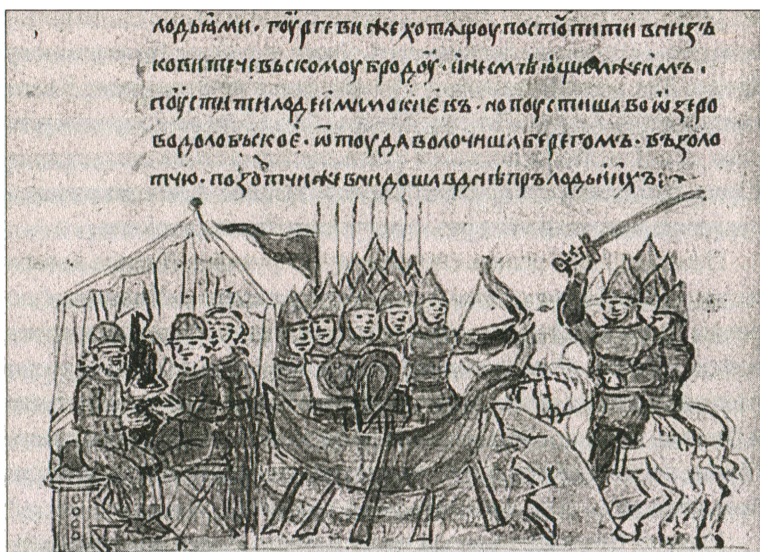 лодьꙗми · гюргеви же хотѧщоу поступити внизъ
ко витечевьскомоу бродоу · и не смѣющимъ же имъ ·
поустити лодеи мимо киевъ · но поустиша во ѡзеро
во долобьское · ѿтоуда волочиша берегомъ · въ золо
тчю · по золотчи же внидоша в днѣпръ лодьи ихъ :